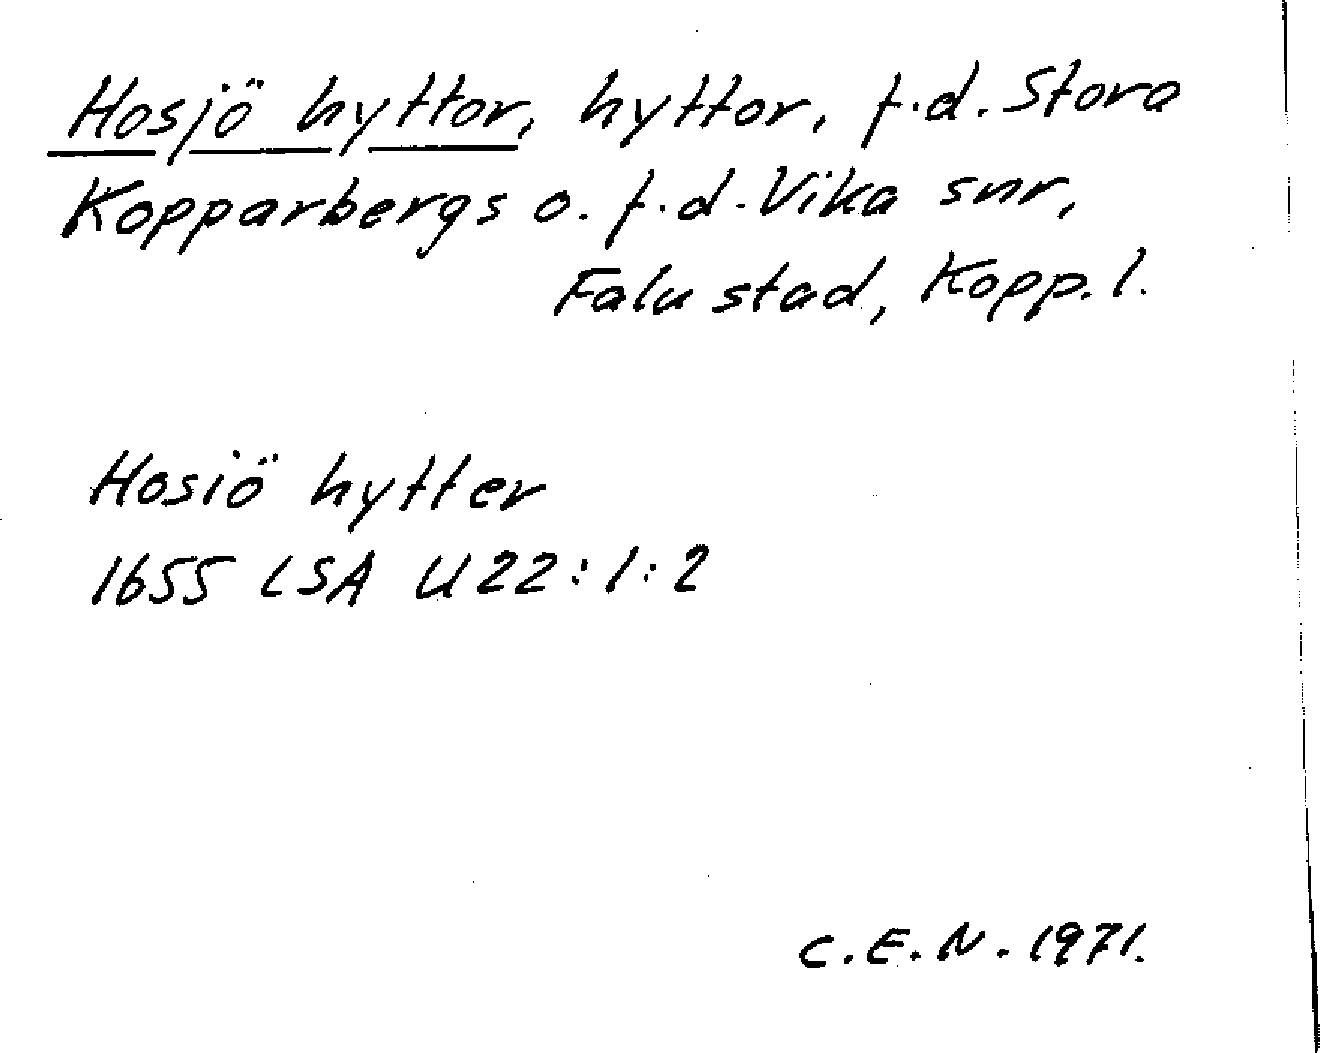 Hosjö hyttor, hyttor, f.d. Stora
Kopparbergs o. f.d. Vika snr,
Falu stad, Kopp. l.
Hosiö hytter
1655 LSA U22:1:2
C.E.N. 1971.